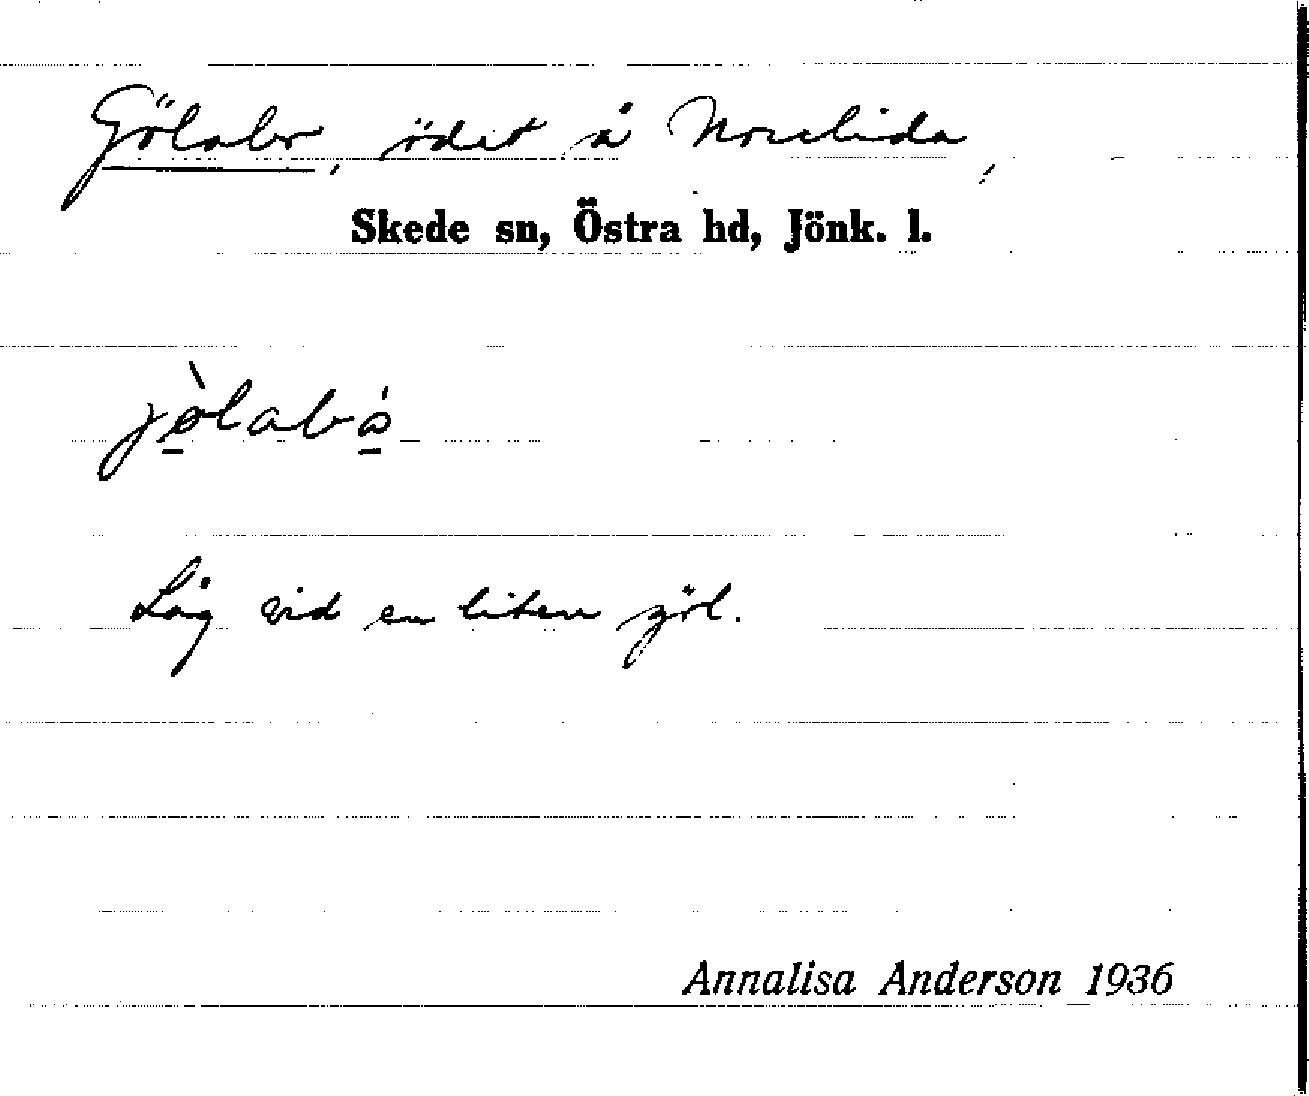 Gölabo, ödet å Norrlida,
Skede sn, Östra hd, Jönk. l.
jölabó
Låg vid en liten göl.
Annalisa Anderson 1936